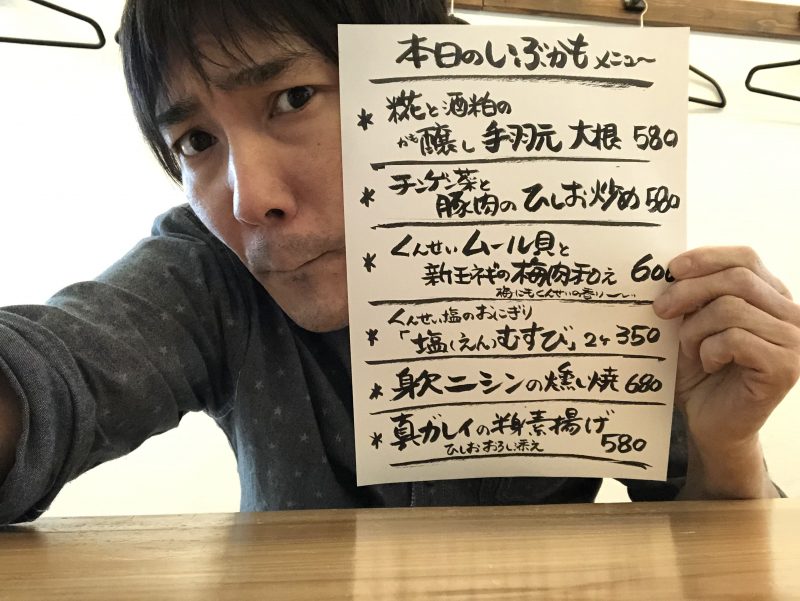 本日のいぶかもメニュー
* 糀と酒粕の
かも醸し 手羽元 大根 580
* チンゲン菜と
豚肉の ひしお炒め 580
* くんせい ムール貝と
新玉ネギの梅肉和え 600
梅にもくんせいの香り〜い
* くんせい塩のおにぎり
「塩(えん)むすび」2ケ 350
* 身欠ニシンの燻し焼 680
* 真ガレイの半身素揚げ
ひしおおろし添え 580